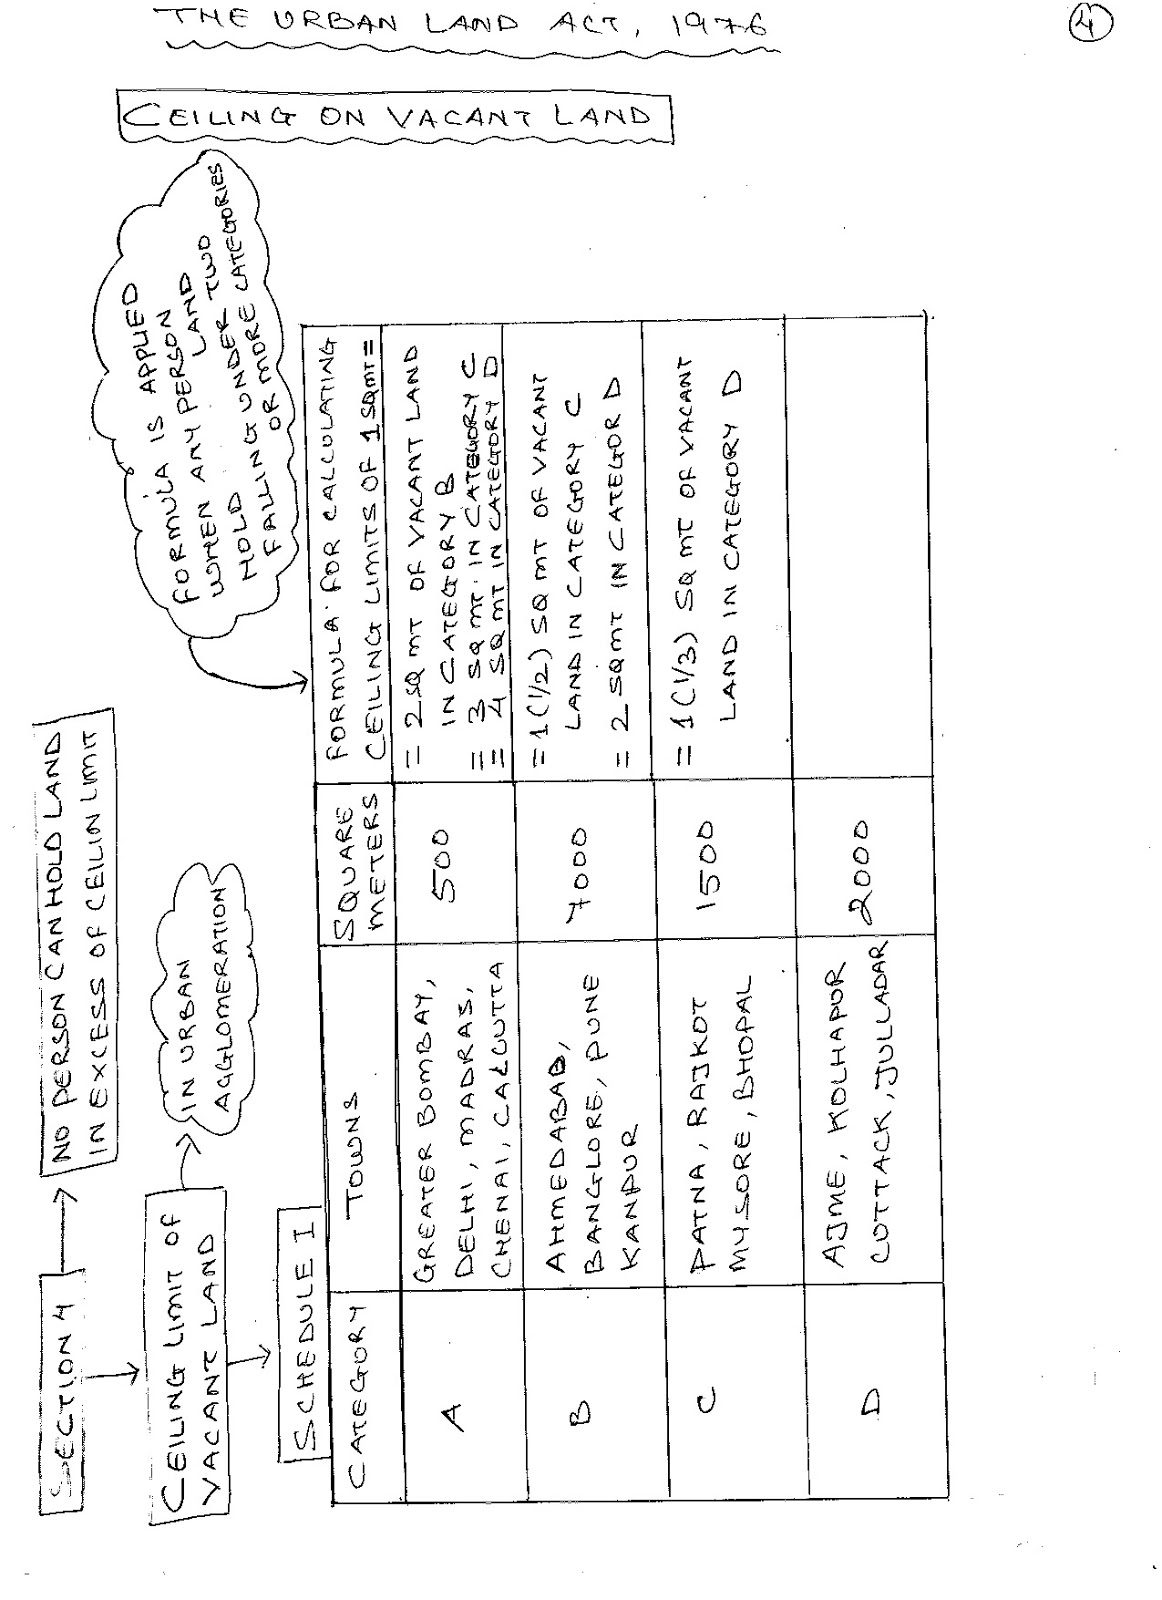 THE URBAN LAND ACT, 1976
4
CEILING ON VACANT LAND
SECTION 4
NO PERSON CAN HOLD LAND
IN EXCESS OF CEILIN LIMIT
CEILING LIMIT OF
VACANT LAND
IN URBAN
AGGLOMERATION
FORMULA IS APPLIED
WHEN ANY PERSON
HOLD LAND
HOLDING UNDER TWO
FALLING OR MORE CATEGORIES
SCHEDULE I
CATEGORY
TOWNS
SQUARE
METERS
FORMULA FOR CALCULATING
CEILING LIMITS OF 1 SQMT=
A
GREATER BOMBAY,
DELHI, MADRAS,
CHENAI, CALCUTTA
500
= 2 SQ MT OF VACANT LAND
IN CATEGORY B
= 3 SQ MT. IN CATEGORY C
= 4 SQ MT IN CATEGORY D
B
AHMEDABAD,
BANGLORE, PUNE
KANPUR
7000
= 1(1/2) SQ MT OF VACANT
LAND IN CATEGORY C
= 2 SQMT IN CATEGOR D
C
PATNA, RAJKOT
MYSORE, BHOPAL
1500
= 1(1/3) SQ MT OF VACANT
LAND IN CATEGORY D
D
AJME, KOLHAPUR
COTTACK, JULLADAR
2000